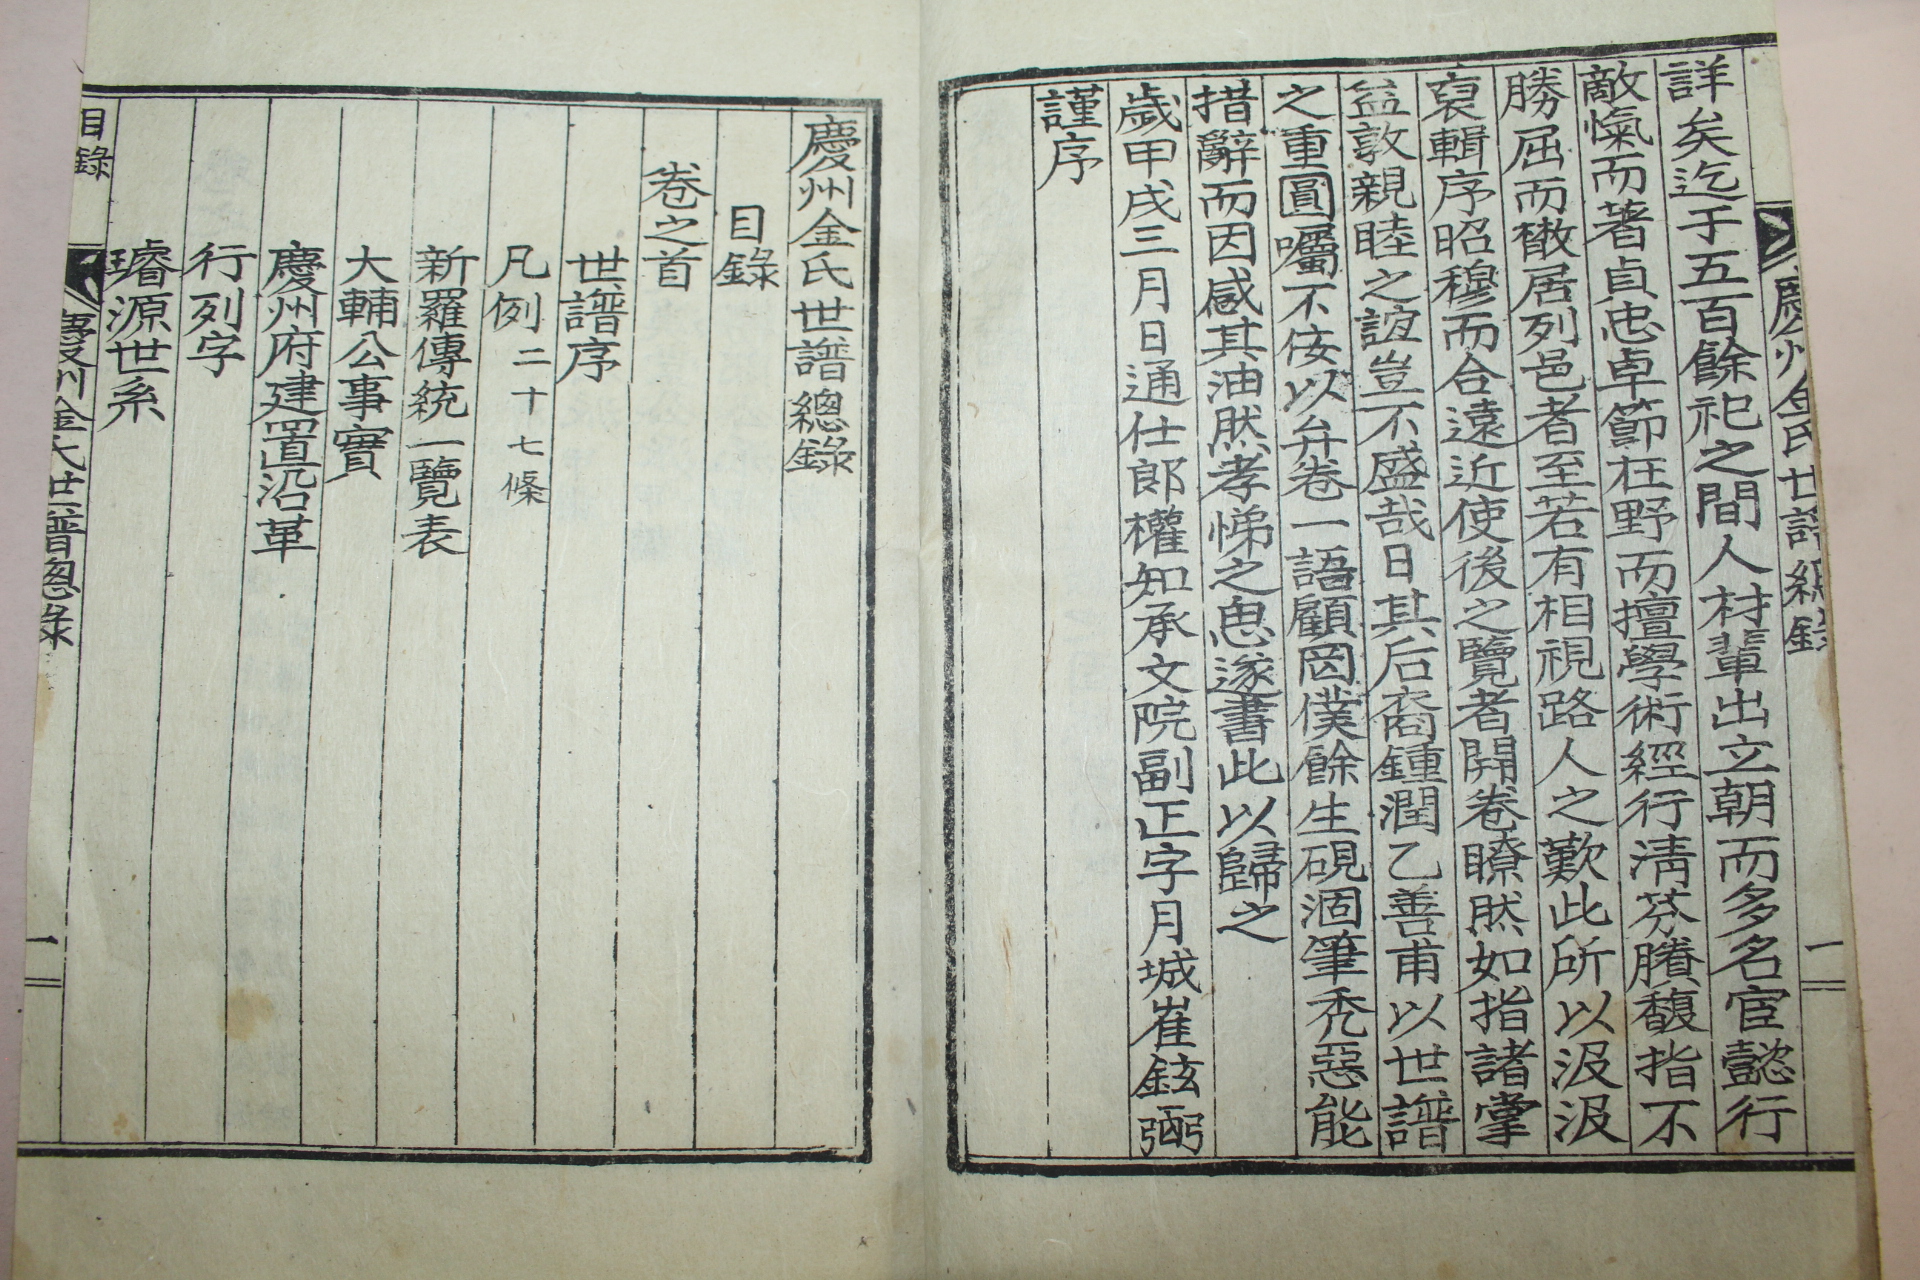 詳矣迄于五百餘祀之間人材輩出立朝而多名宦懿行
敵愾而著貞忠卓節在野而擅學術經行淸芬賸馥指不
勝屈而散居列邑者至若有相視路人之歎此所以汲汲
裒輯序昭穆而合遠近使後之覽者開卷瞭然如指諸掌
益敦親睦之誼豈不盛哉日其后裔鍾潤乙善甫以世譜
之重圓囑不侫以弁卷一語顧罔僕餘生硯涸筆禿惡能
措辭而因感其油然孝悌之思遂書此以歸之
歲甲戌三月日通仕郞權知承文院副正字月城崔鉉弼
謹序
慶州金氏世譜總錄
一
慶州金氏世譜總錄
目錄
卷之首
世譜序
凡例二十七條
新羅傳統一覽表
大輔公事實
慶州府建置沿革
行列字
璿源世系
目錄
慶州金氏世譜總錄
一